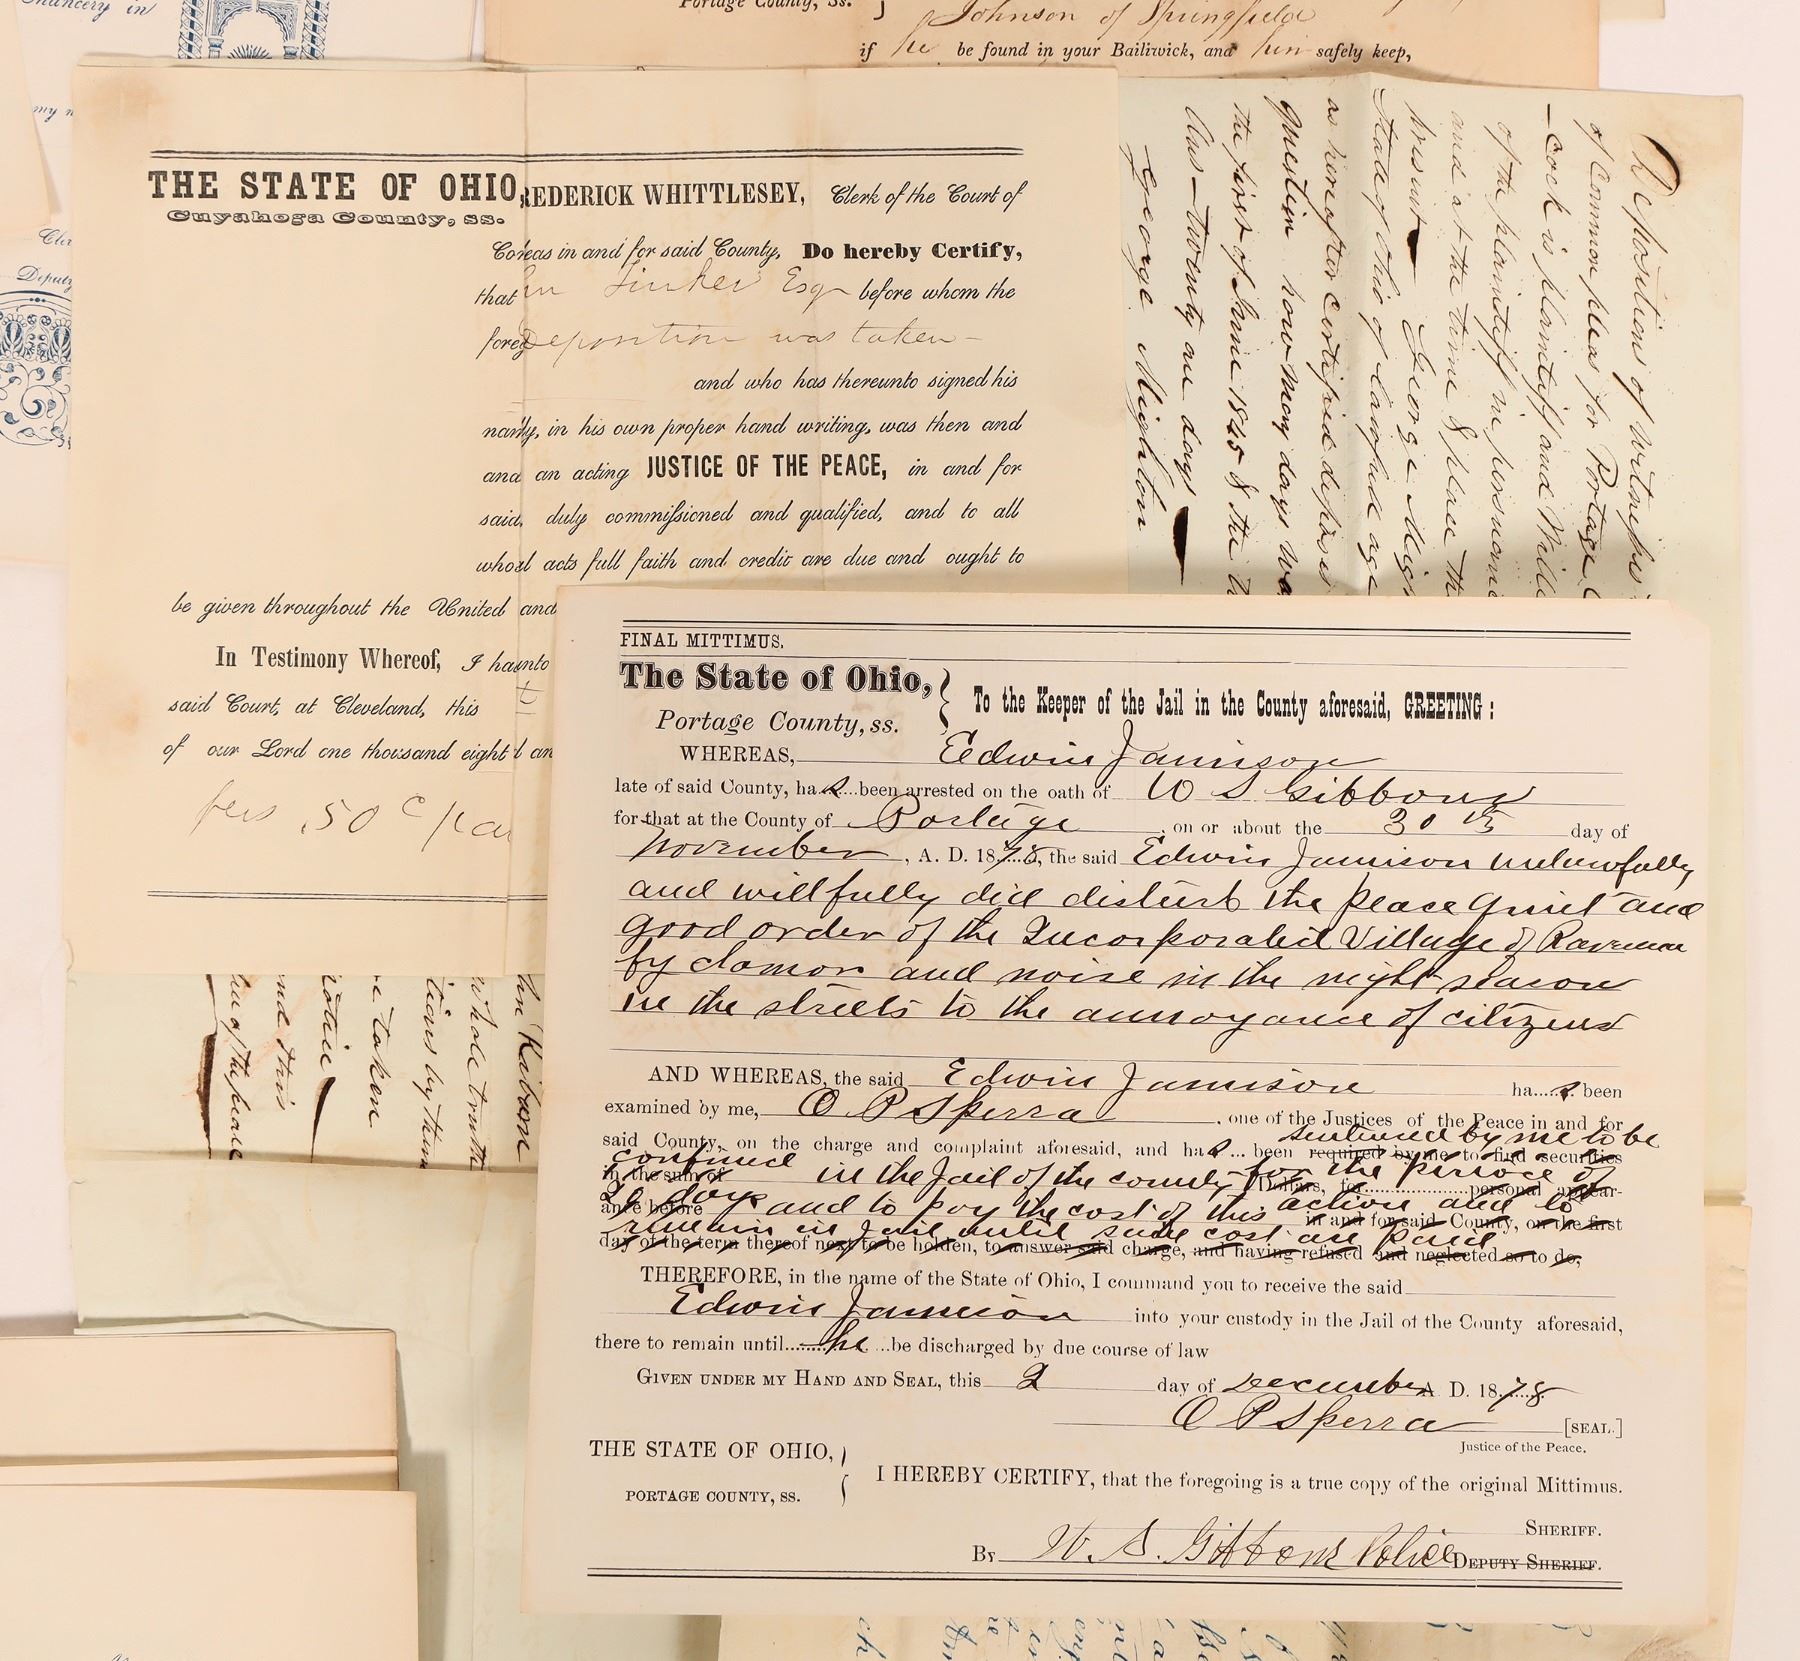 Chancery in
my
Cler
Deputy
Portage County, Ss.
Johnson of Springfield
if he be found in your Bailiwick, and him safely keep,
THE STATE OF OHIO,
Cuyahoga County, ss.
REDERICK WHITTLESEY, Clerk of the Court of
Co eas in and for said County, Do hereby Certify,
that Esqr before whom the
foreg Deposition was taken
and who has thereunto signed his
nam y, in his own proper hand writing, was then and
and an acting JUSTICE OF THE PEACE, in and for
said, duly commissioned and qualified, and to all
who l acts full faith and credit are due and ought to
be given throughout the United and
In Testimony Whereof, I ha nto
said Court, at Cleveland, this
of our Lord one thousand eight an
fees .50 c
Depositions of Witnesses
of Common pleas for Portage C
cock is plaintiff and Will
of the plaintiff in personal
and at the time & place th
present George Migh
State of Ohio of lawful age
as hereafter certified deposes
Question how many days wa
the first of June 1845 & the
Ans twenty one days
George Mighton
whole truth
tions by them
taken
notice
and this
of the peace
FINAL MITTIMUS.
The State of Ohio,
Portage County, ss.
To the Keeper of the Jail in the County aforesaid, GREETING:
WHEREAS, Edwin Jamison
late of said County, has been arrested on the oath of W S Gibbons
for that at the County of Portage, on or about the 30th day of
November, A. D. 1878, the said Edwin Jamison unlawfully
and willfully did disturb the peace quiet and
good order of the Incorporated Village of Ravenna
by clamor and noise in the night season
in the streets to the annoyance of citizens
AND WHEREAS, the said Edwin Jamison has been
examined by me, O P Sperra, one of the Justices of the Peace in and for
said County, on the charge and complaint aforesaid, and has been required by me to find securities
sentenced by me to be
confined in the Jail of the county for the period of
in the sum of Dollars, for personal appear-
20 days and to pay the cost of this action and to
ance before in and for said County, on the first
remain in Jail until said cost are paid
day of the term thereof next to be holden, to answer said charge, and having refused and neglected so to do,
THEREFORE, in the name of the State of Ohio, I command you to receive the said
Edwin Jamison into your custody in the Jail of the County aforesaid,
there to remain until he be discharged by due course of law
GIVEN UNDER MY HAND AND SEAL, this 2 day of December A. D. 1878
O P Sperra [SEAL.]
Justice of the Peace.
THE STATE OF OHIO,
PORTAGE COUNTY, SS.
I HEREBY CERTIFY, that the foregoing is a true copy of the original Mittimus.
SHERIFF.
By W. S. Gibbons Police DEPUTY SHERIFF.